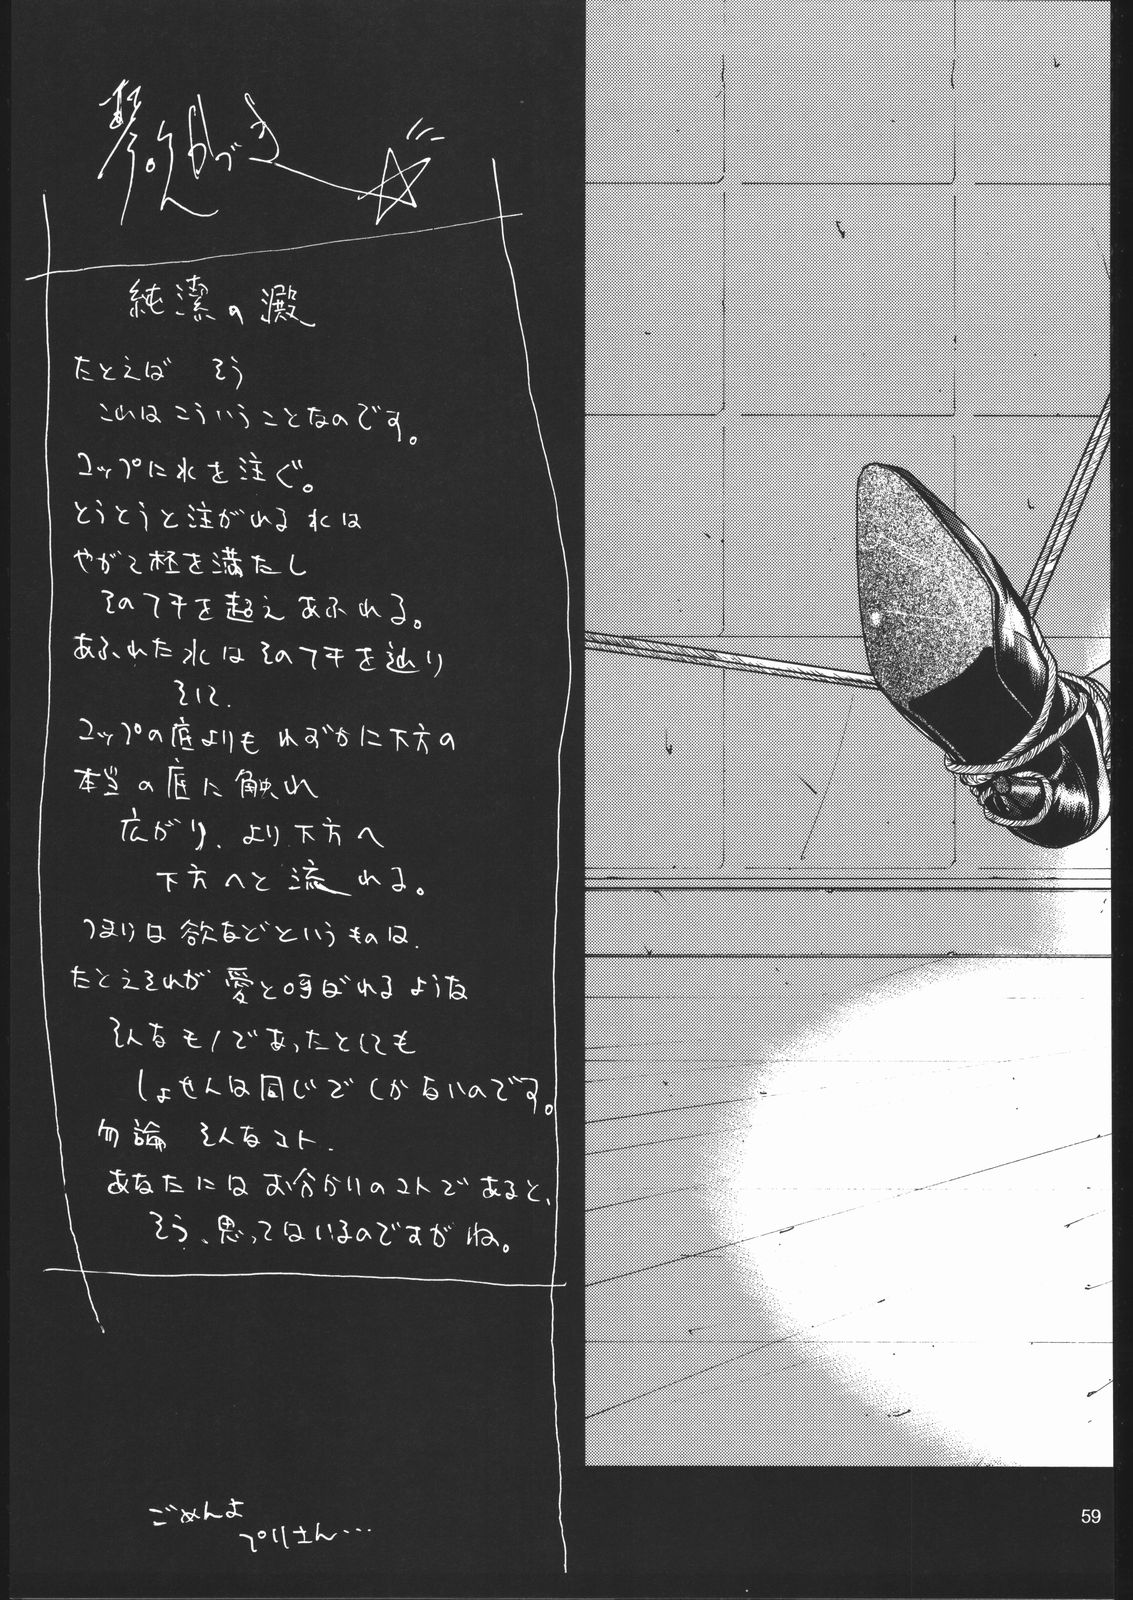 琴の吹かづき
純潔の澱
たとえば そう
これはこういうことなのです。
コップに水を注ぐ。
とうとうと注がれる水は
やがて杯を満たし
そのフチを超えあふれる。
あふれた水はそのフチを辿り
そして、
コップの底よりもわずかに下方の
本当の底に触れ
広がり、より下方へ
下方へと流れる。
つまりは欲などというものは、
たとえそれが愛と呼ばれるような
そんなモノであったとしても
しょせんは同じでしかないのです。
勿論 そんなコト、
あなたにはお分かりのコトであると、
そう、思ってはいるのですがね。
ごめんよ
プリさん…
59